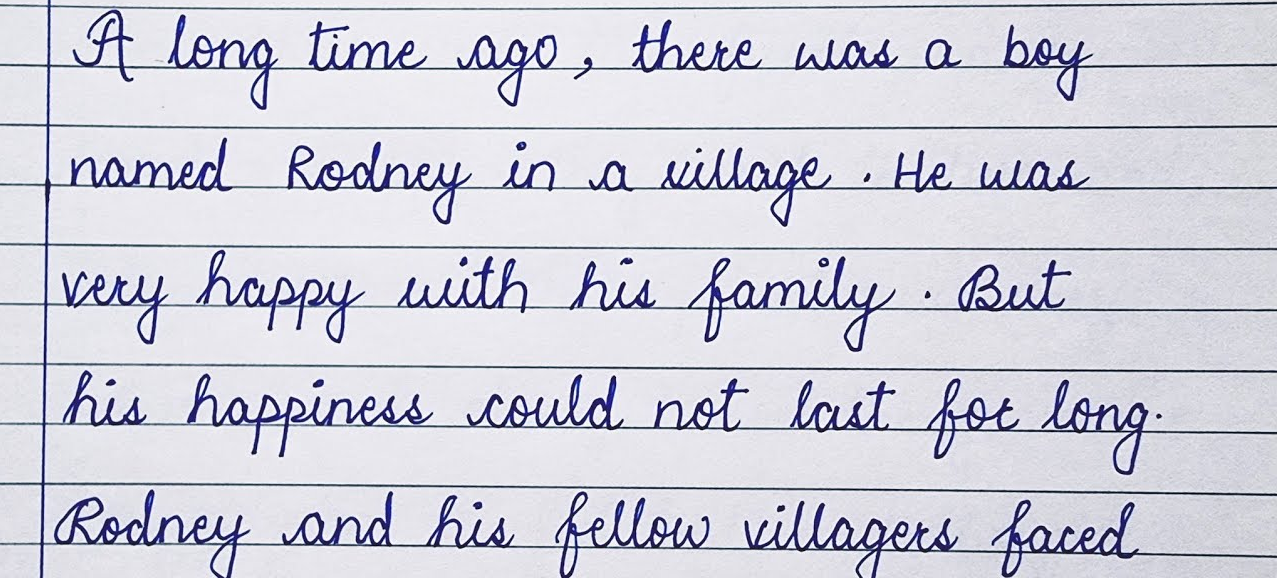 A long time ago, there was a boy
named Rodney in a village. He was
very happy with his family. But
his happiness could not last for long.
Rodney and his fellow villagers faced